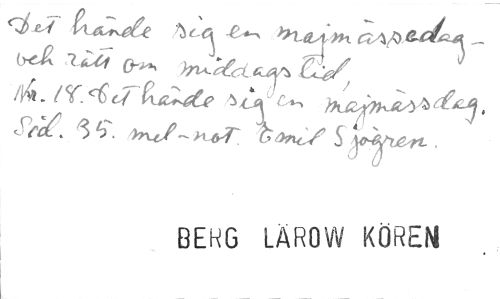 Det hände sig en majmässedag –
och rätt om middagstid,
Nr. 18. Det hände sig en majmässdag.
Sid. 35. mel-not. Emil Sjögren.
BERG LÄROW KÖREN